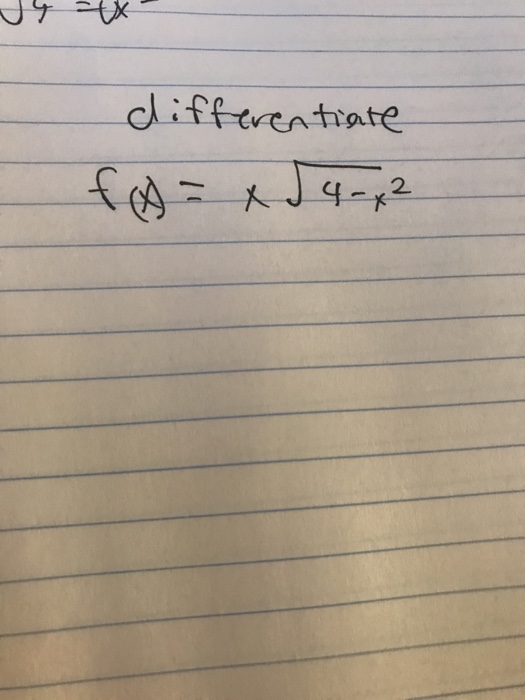 differentiate
f(x) = x √4-x²